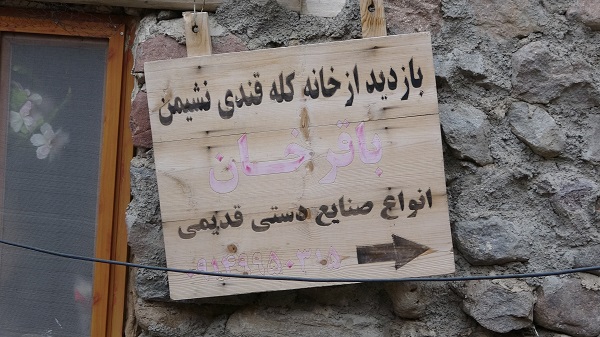 بازدید از خانه کله قندی نشیمن
باقرخان
انواع صنایع دستی قدیمی